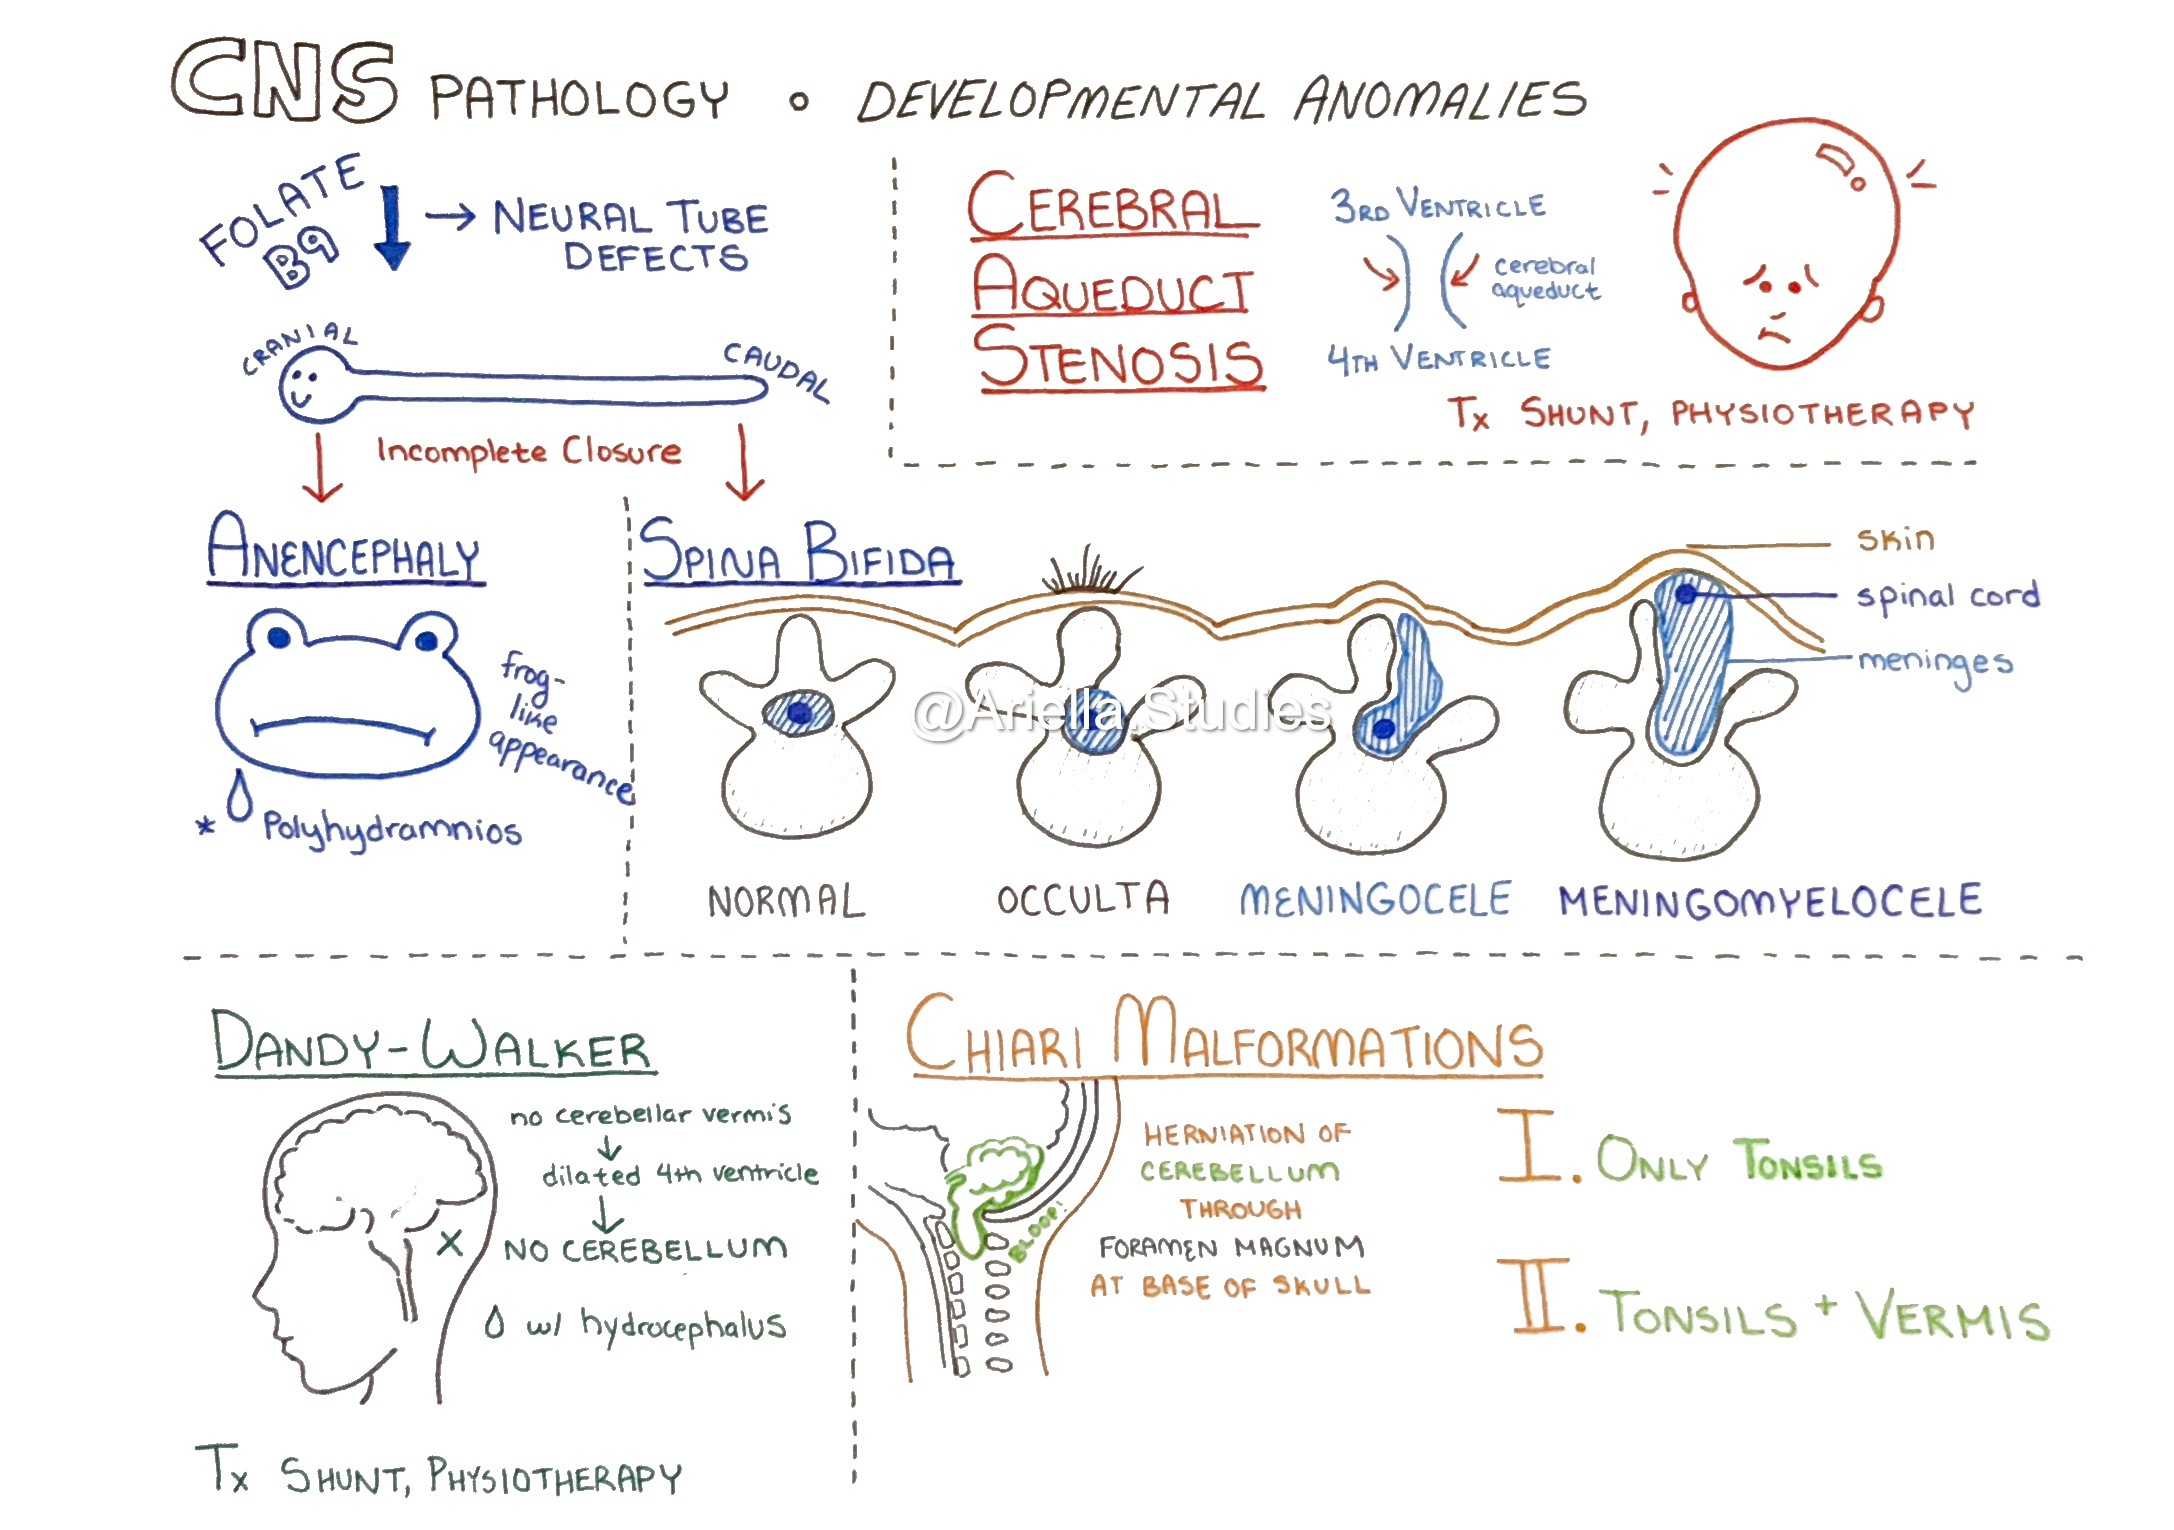 CNS PATHOLOGY • DEVELOPMENTAL ANOMALIES
FOLATE
B9
→ NEURAL TUBE
DEFECTS
CRANIAL
CAUDAL
Incomplete Closure
CEREBRAL
AQUEDUCT
STENOSIS
3RD VENTRICLE
cerebral
aqueduct
4TH VENTRICLE
Tx SHUNT, PHYSIOTHERAPY
ANENCEPHALY
frog-
like
appearance
* Polyhydramnios
SPINA BIFIDA
skin
spinal cord
meninges
@Ariella.Studies
NORMAL
OCCULTA
MENINGOCELE
MENINGOMYELOCELE
DANDY-WALKER
no cerebellar vermis
↓
dilated 4th ventricle
↓
X NO CEREBELLUM
w/ hydrocephalus
Tx SHUNT, PHYSIOTHERAPY
CHIARI MALFORMATIONS
BLOOP!
HERNIATION OF
CEREBELLUM
THROUGH
FORAMEN MAGNUM
AT BASE OF SKULL
I. ONLY TONSILS
II. TONSILS + VERMIS